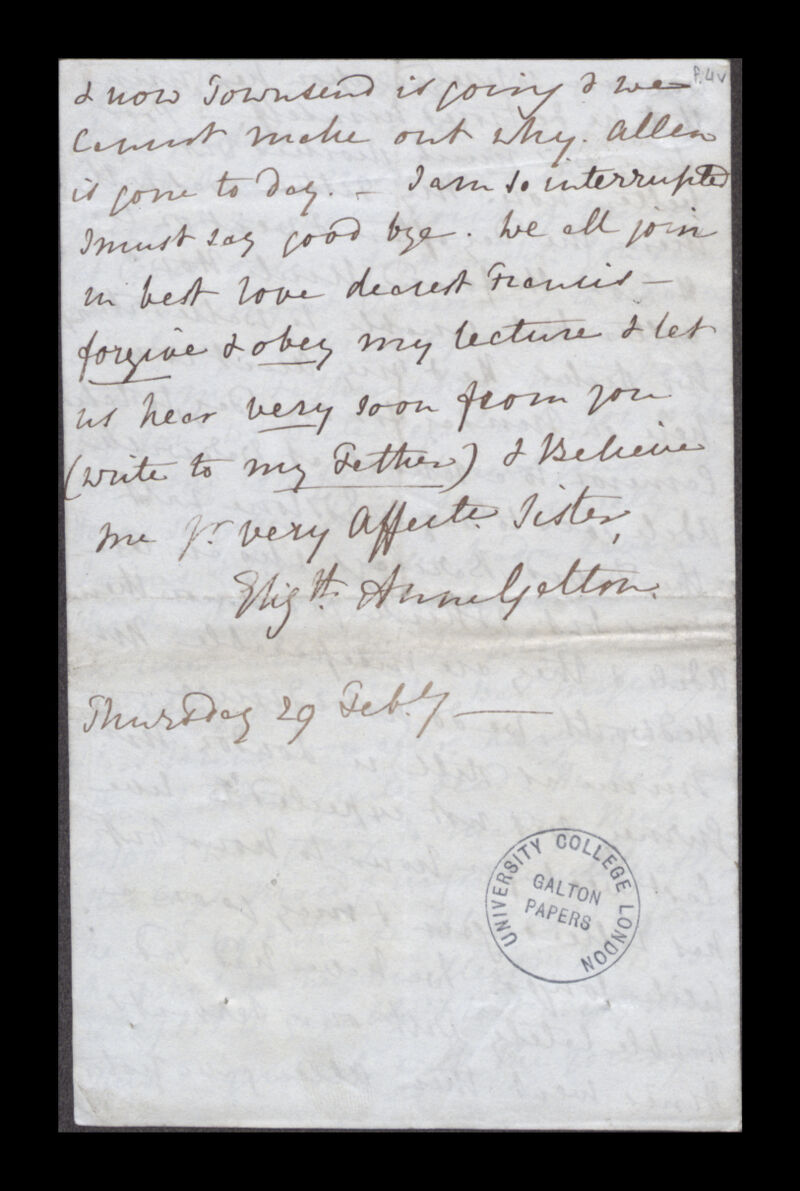 P.4v
& now Townsend is going & we
cannot make out why. Allen
is gone to day. – I am so interrupted
I must say good bye. We all join
in best love dearest Francis –
forgive & obey my lecture & let
us hear very soon from you
(write to my Father) & Believe
me yr very Affecte. Sister,
Elizth. Anne Galton.
Thursday 29 Feb.y —
UNIVERSITY COLLEGE LONDON
GALTON
PAPERS